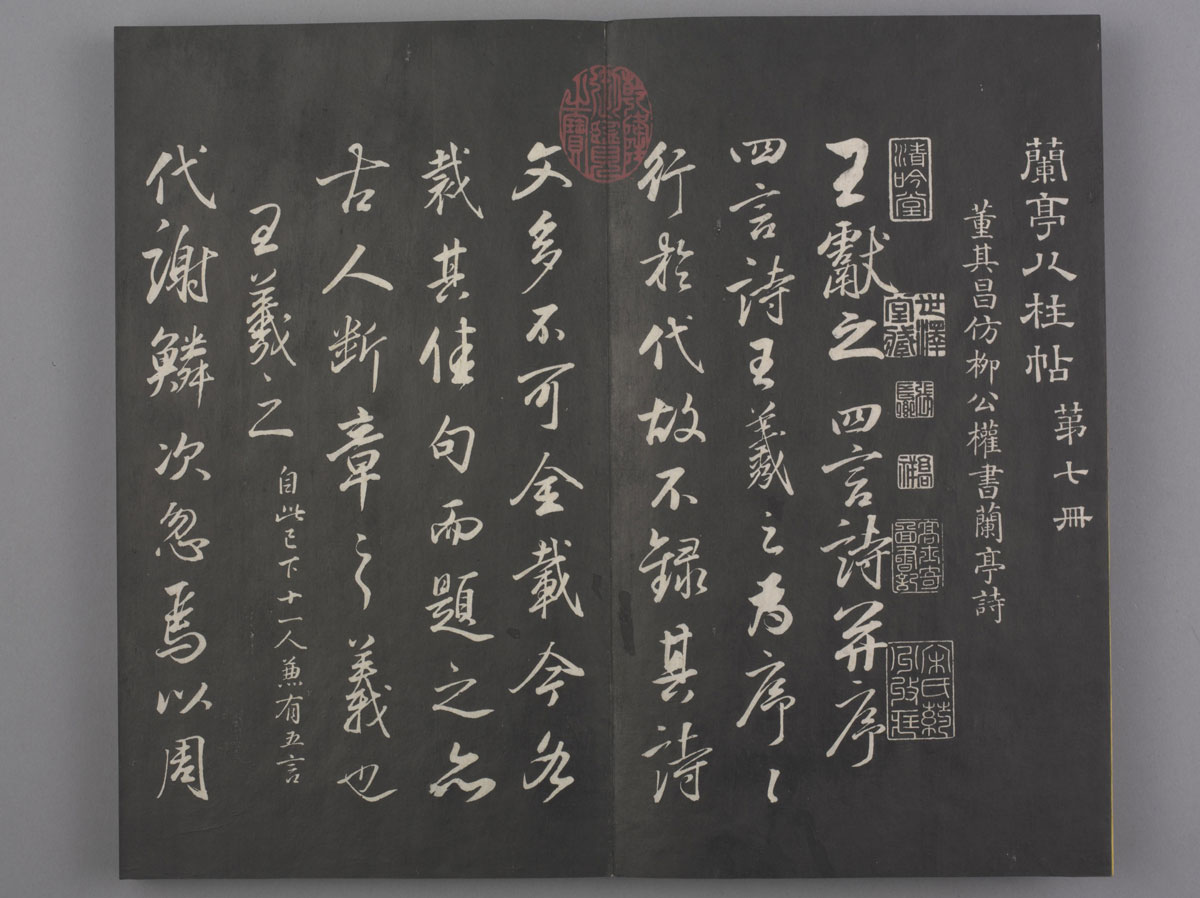 蘭亭八柱帖 苐七冊
董其昌仿柳公權書蘭亭詩
清吟堂
世澤堂藏
王獻之四言詩并序
四言詩王羲之為序序
行於代故不錄其詩
文多不可全載今各
裁其佳句而題之亦
古人斷章之義也
王羲之 自此已下十一人兼有五言
代謝鱗次忽焉以周